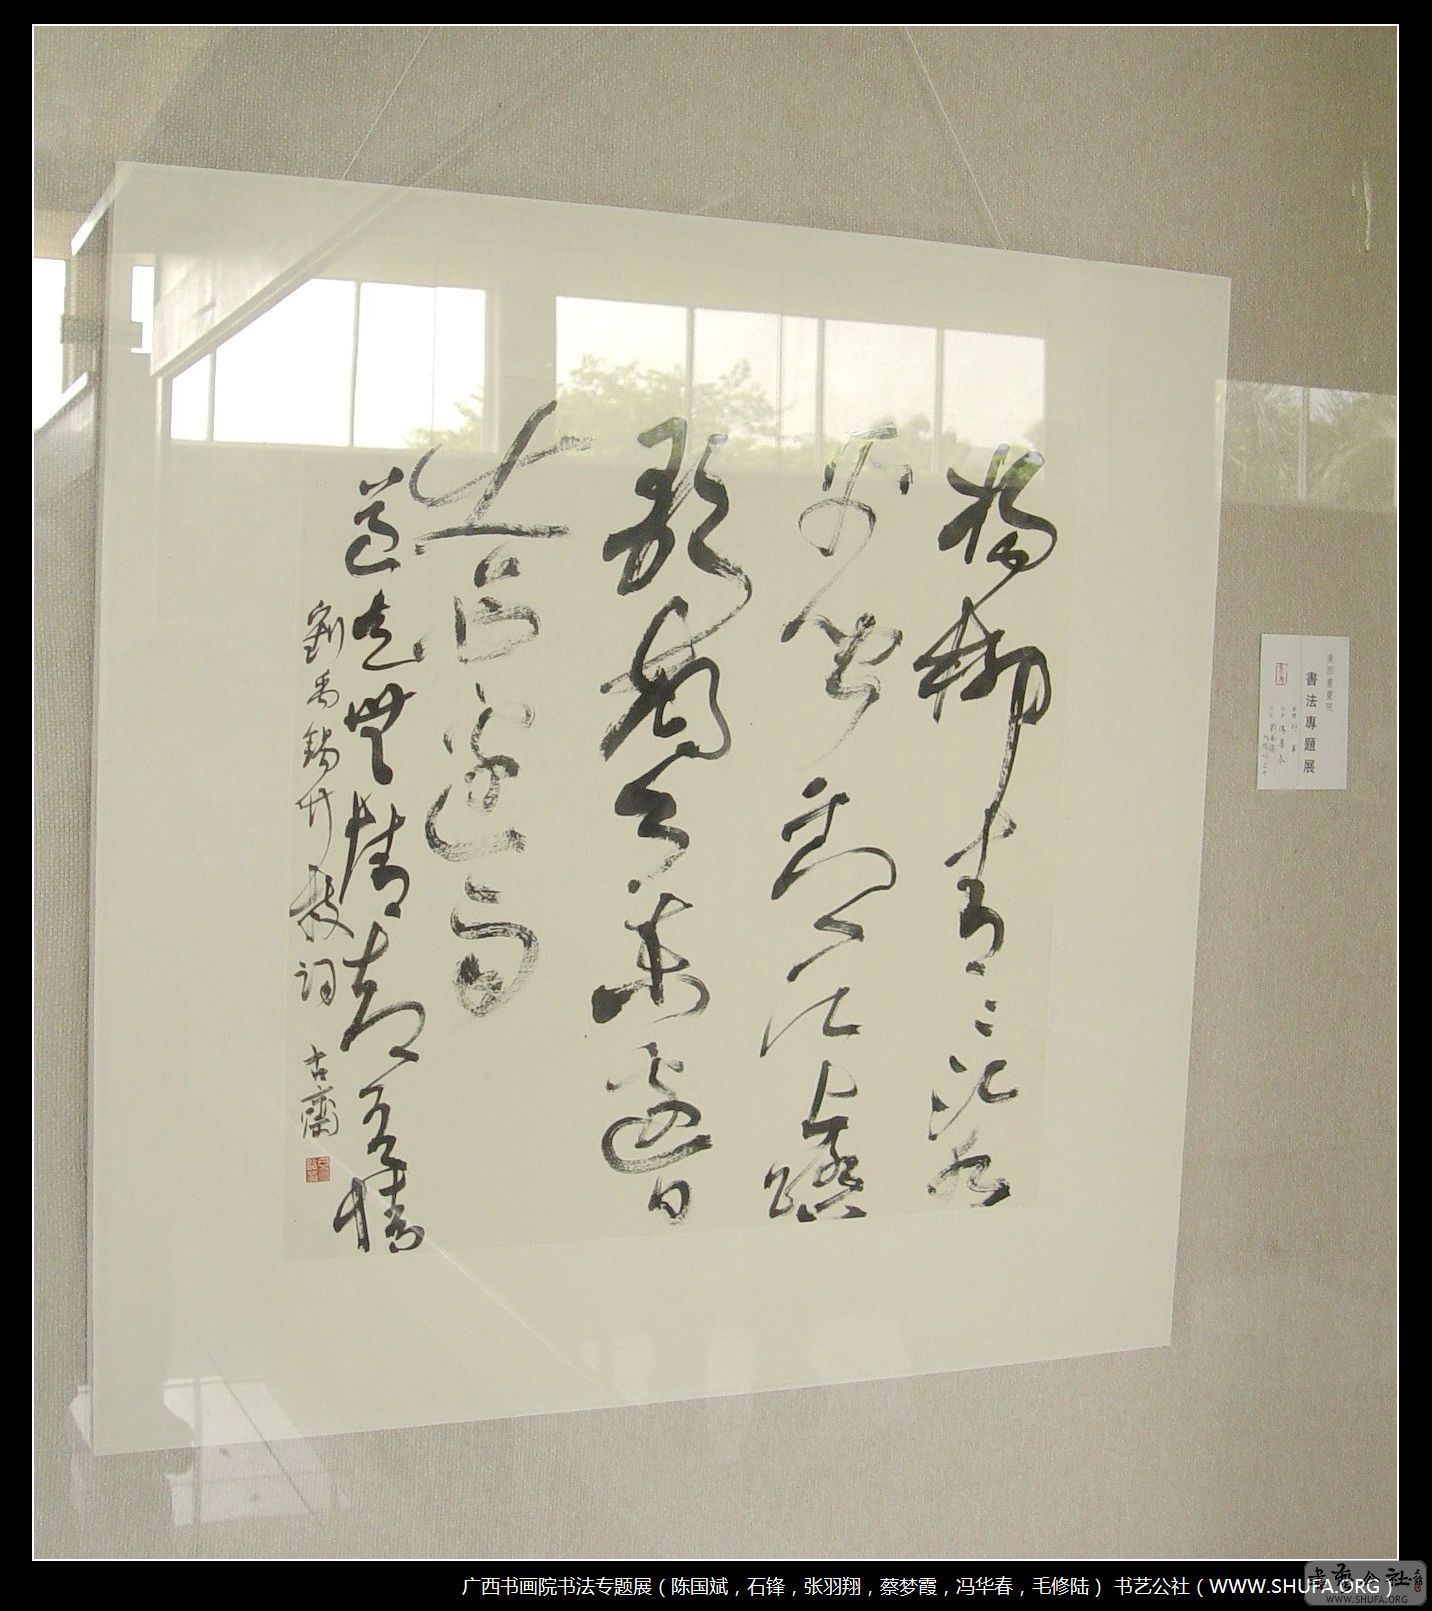 楊柳青〻江水
平聞郎江上踏
歌聲東邊日
出西邊雨
道是無晴却有情
劉禹錫竹枝詞 古齋
廣西書畫院
書法專題展
广西书画院书法专题展（陈国斌，石锋，张羽翔，蔡梦霞，冯华春，毛修陆） 书艺公社（WWW.SHUFA.ORG）
书艺公社
WWW.SHUFA.ORG